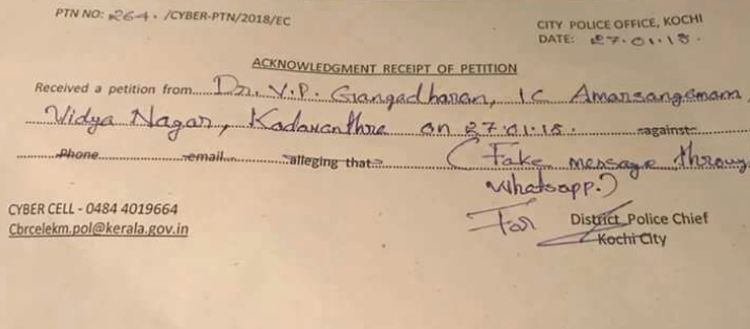 PTN NO: 264. /CYBER-PTN/2018/EC
CITY POLICE OFFICE, KOCHI
DATE: 27.01.18.
ACKNOWLEDGMENT RECEIPT OF PETITION
Received a petition from.....Dr. V.P. Gangadharan, 1C Amarsangamam
Vidya Nagar, Kadavanthra on 27.01.18. against
Phone email alleging that (Fake message throug
whatsapp.)
CYBER CELL - 0484 4019664
Cbrcelekm.pol@kerala.gov.in
For District Police Chief
Kochi City